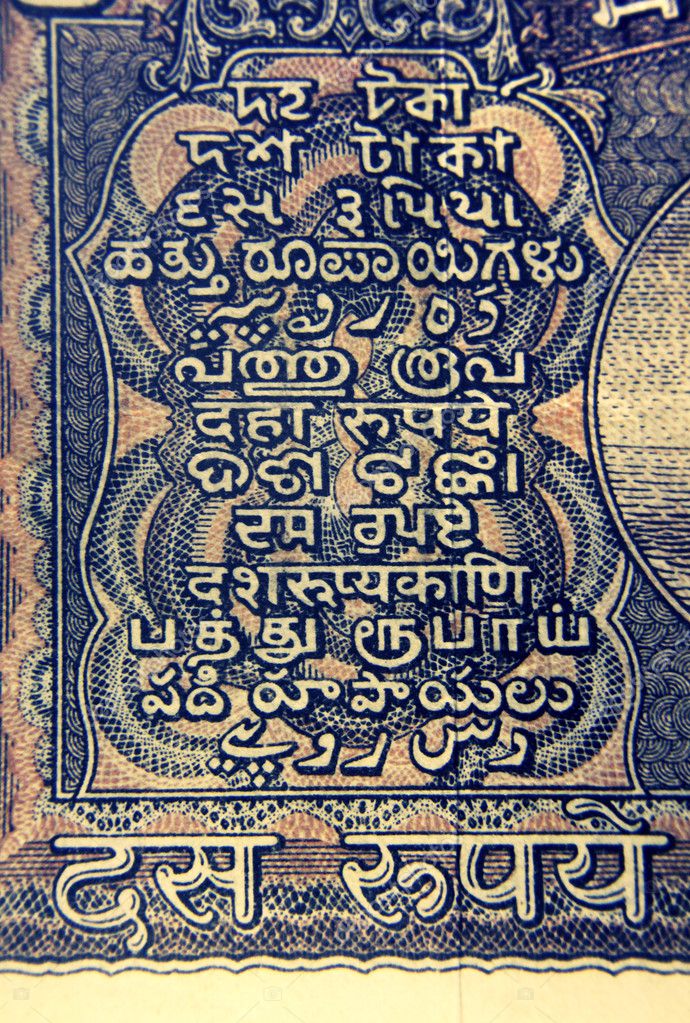 দহ টকা
দশ টাকা
દસ રૂપિયા
ಹತ್ತು ರೂಪಾಯಿಗಳು
പത്തു രൂപ
दहा रुपये
ଦଶ ଟଙ୍କା
ਦਸ ਰੁਪਏ
दशरूप्यकाणि
பத்து ரூபாய்
పది రూపాయలు
دس روپیے
दस रूपये